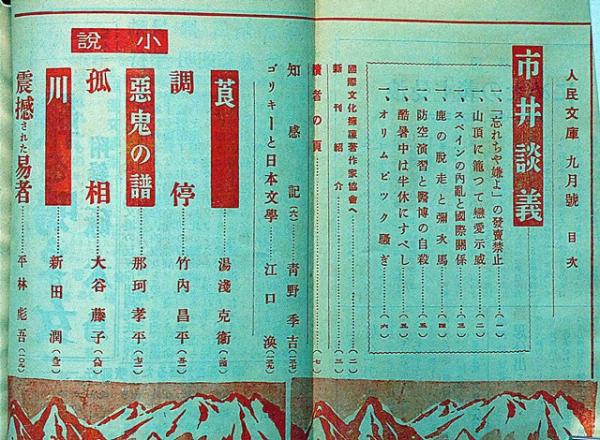 人民文庫 九月號 目次
市井談義
一、「忘れちや嫌よ」の發賣禁止………(一)
一、山頂に籠つて戀愛示威………(二)
一、スペインの內亂と國際關係………(三)
一、鹿の脱走と彌次馬………(四)
一、防空演習と醫博の自殺………(五)
一、酷暑中は半休にすべし………(五)
一、オリムピツク騷ぎ………(六)
國際文化擁護著作家協會へ………(二)
新刊紹介………(三)
讀者の頁………(七)
知感記(六)………靑野季吉
ゴリキーと日本文學………江口渙
小說
莨………湯淺克衞
調停………竹內昌平
惡鬼の譜………那珂孝平
孤相………大谷藤子
川………新田潤
震撼された易者………平林彪吾